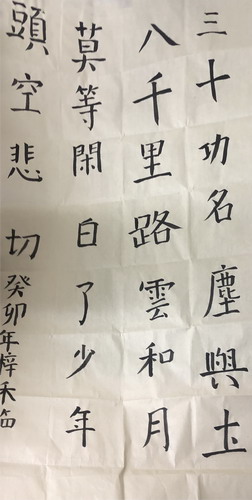 三十功名塵與土
八千里路雲和月
莫等閑白了少年
頭空悲切
癸卯年梓禾